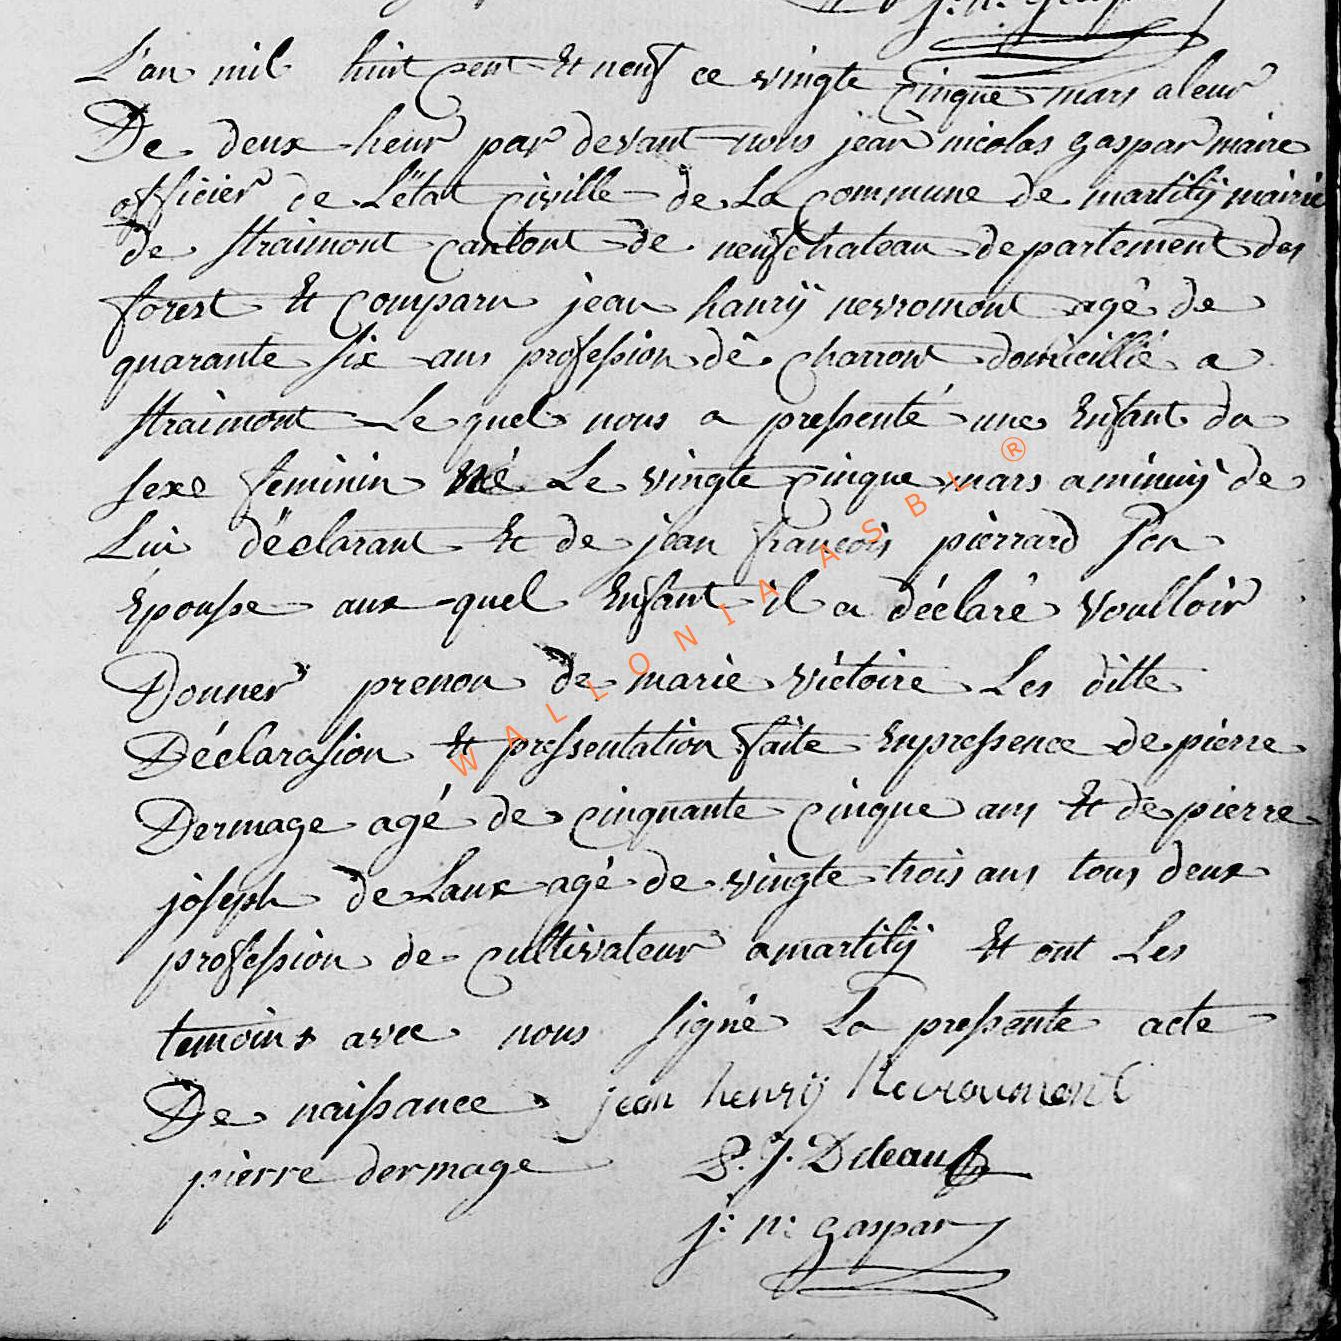 j: n: gaspar
L'an mil huit cent Et neuf ce vingte cinque mars aleur
De deux heur par devant nous jean nicolas gaspar maire
officier de L'ëtat civille de La commune de martilÿ mairie
de straimont cantont de neufchateau departement des
forest Et comparu jean hanrÿ nevromont agé de
quarante six ans profession dê charron domicillié a
straimont Le quel nous a pressenté une Enfant du
sexe feminin Né Le vingte cinque mars a minuÿ de
Lui dëclarant Et de jean françois pierrard son
Épousse aux quel Enfant il a déclaré voulloir
Donner prenon de marie victoire Les ditte
Déclarasion Et pressentation faite Enpressence de pierre
Dermage agé de cinquante cinque ans Et de pierre
joseph deLaux agé de vingte trois ans tous deux
profession de cultivateur a martilÿ Et ont Les
temoins avec nous signé La pressente acte
De naissance jean henrÿ Nevroumont
pierre dermage P. J. Deleau
j: n: gaspar
WALLONIA ASBL ®